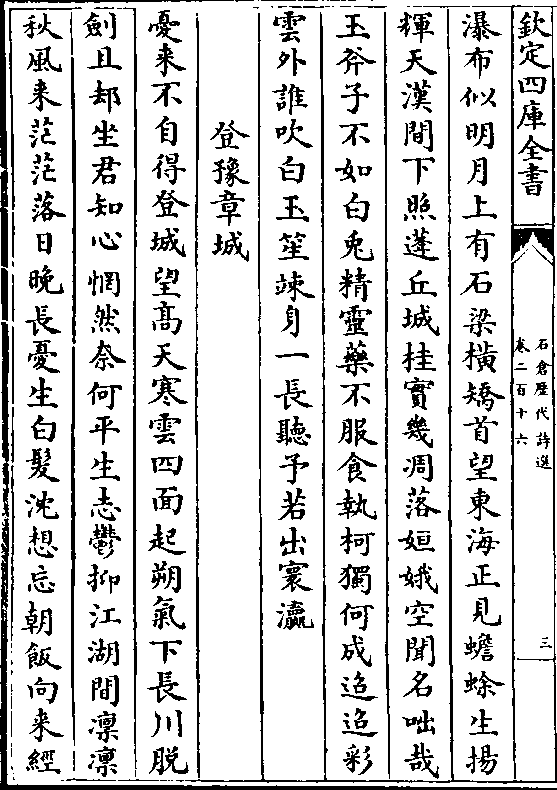 欽定四庫全書
石倉歷代詩選
卷二百十六
三
瀑布似明月上有石梁橫矯首望東海正見蟾蜍生揚
輝天漢間下照蓬丘城桂實幾凋落姮娥空聞名咄哉
玉斧子不如白兎精靈藥不服食執柯獨何成迢迢彩
雲外誰吹白玉笙竦身一長聽予若出寰瀛
登豫章城
憂来不自得登城望髙天寒雲四面起朔氣下長川脱
劍且却坐君知心惘然奈何平生志鬱抑江湖間凛凛
秋風来茫茫落日晚長憂生白髮沈想忘朝飯向来經